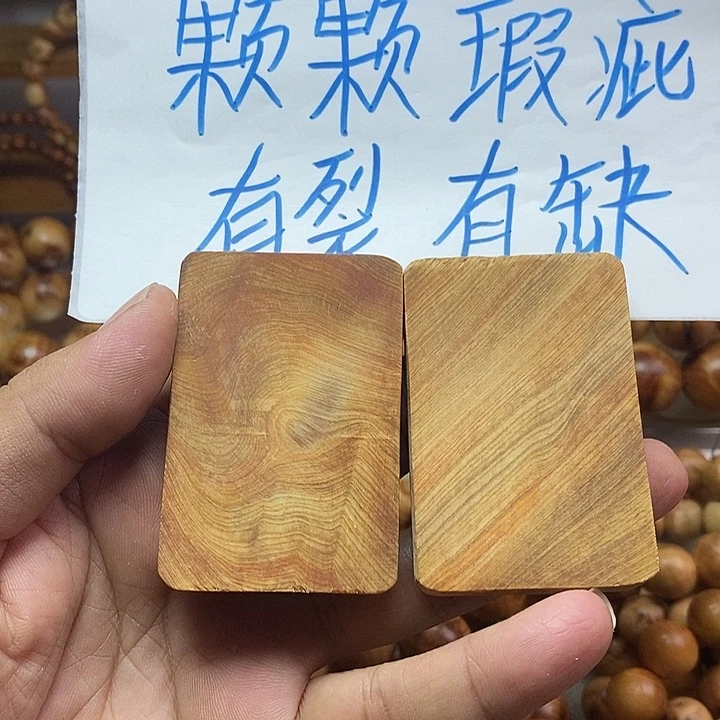 颗颗瑕疵
有裂有缺